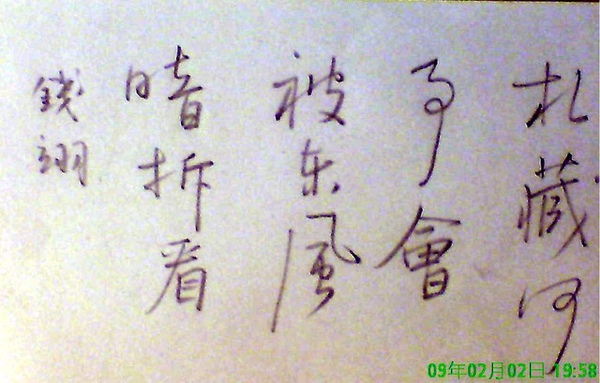 札藏何
事會
被东風
暗拆看
錢翊
09年02月02日 19:58